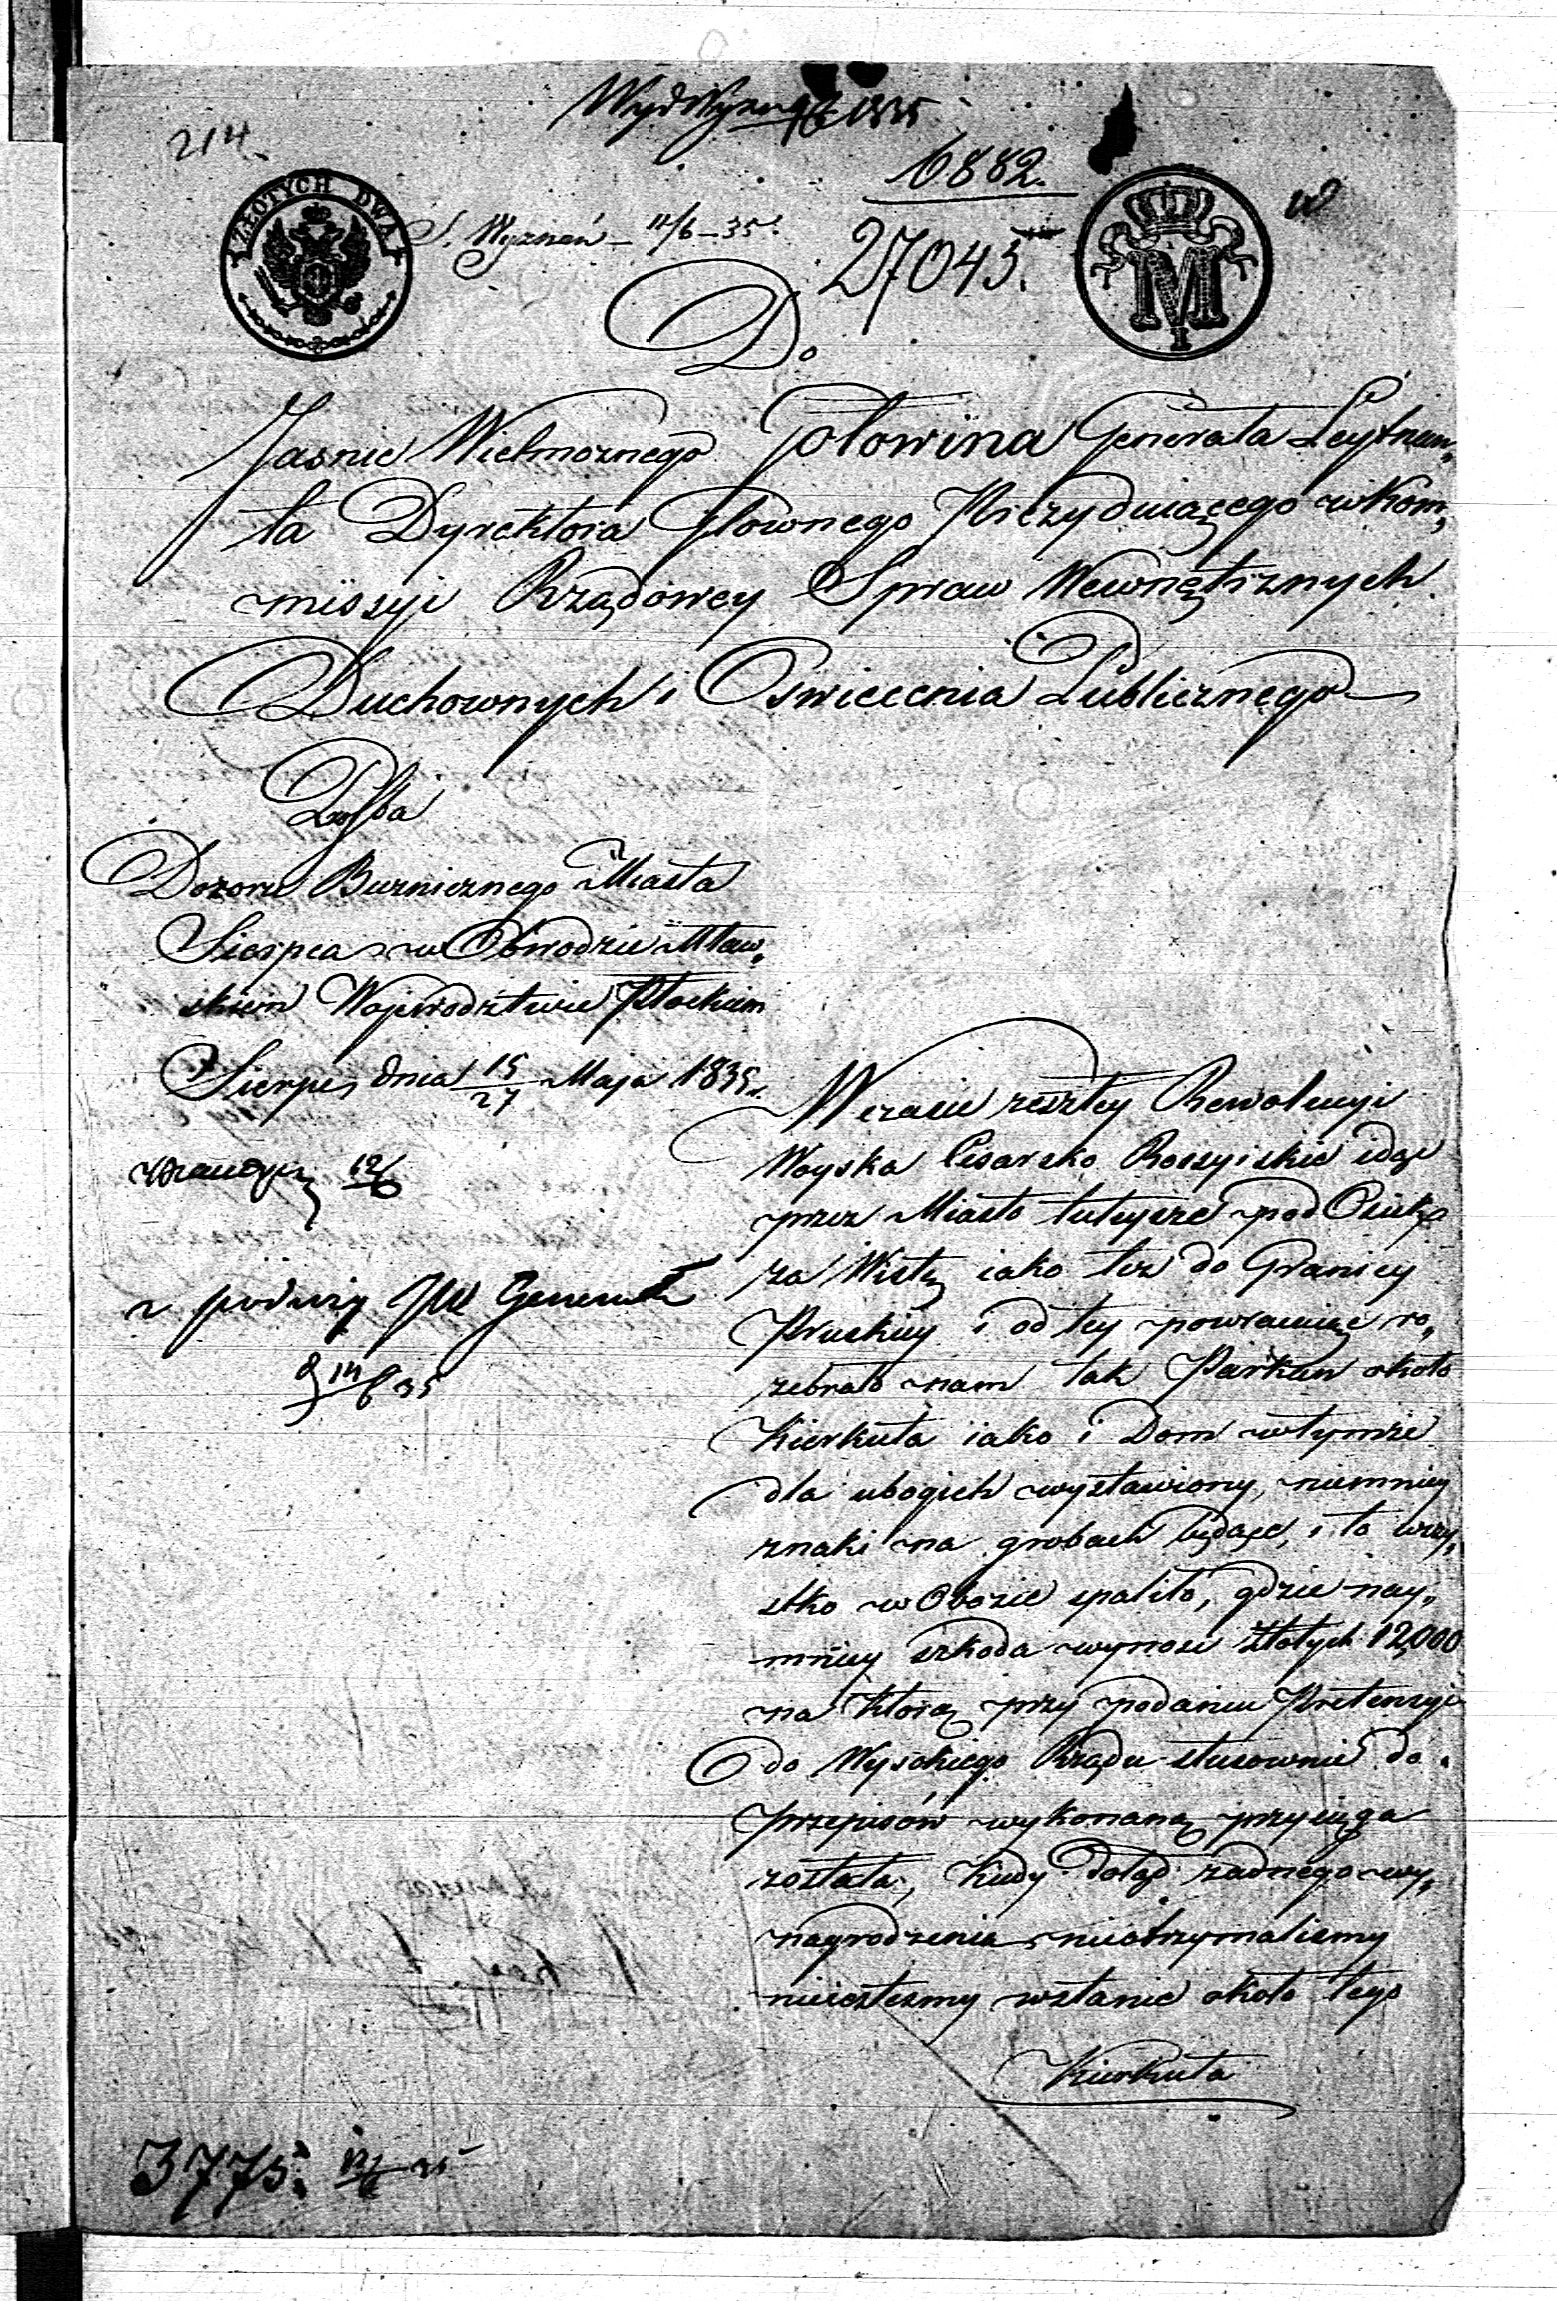 Wyd Wyzn 9/6 1835
214
6882.
ZŁOTYCH DWA
S. Wyznań – 11/6 – 35.
27045.
M
I
Do
Jasnie Wielmoznego Gołowina Generała Leytnan„
ta Dyrektora Głownego Prezyduiącego w Kom„
missyi Rządowey Spraw Wewnętrznych
Duchownych i Oswiecenia Publicznego
Prosba
Dozoru Buznicznego Miasta
Sierpca w Obwodzie Mław„
skim Wojewodztwie Płockim
Sierpc dnia 15/27 Maja 1835.
W czasie zeszłey Rewolucyi
Woyska Cesarsko Rossyiskie idąc
przez Miasto tuteysze pod Osiek
za Wisłę iako tez do Granicy
Pruskiey i od tey powracaiąc ro„
zebrało nam tak Parkan około
Kierkuta iako i Dom w tymże
dla ubogich wystawiony, niemniey
znaki na grobach będące, i to wszy„
stko w Obozie spaliło, gdzie nay„
mniey szkoda wynosi Złotych 12,000
na ktorą przy podaniu Pretensyi
do Wysokiego Rządu stosownie do
przepisów wykonaną przysięga
została, kiedy dotąd zadnego wy„
nagrodzenia nieotrzymalismy
nieiestesmy wstanie około tego
Kierkuta
12/6
z podróży JW Generała
14/6 35
3775. 12/6 35